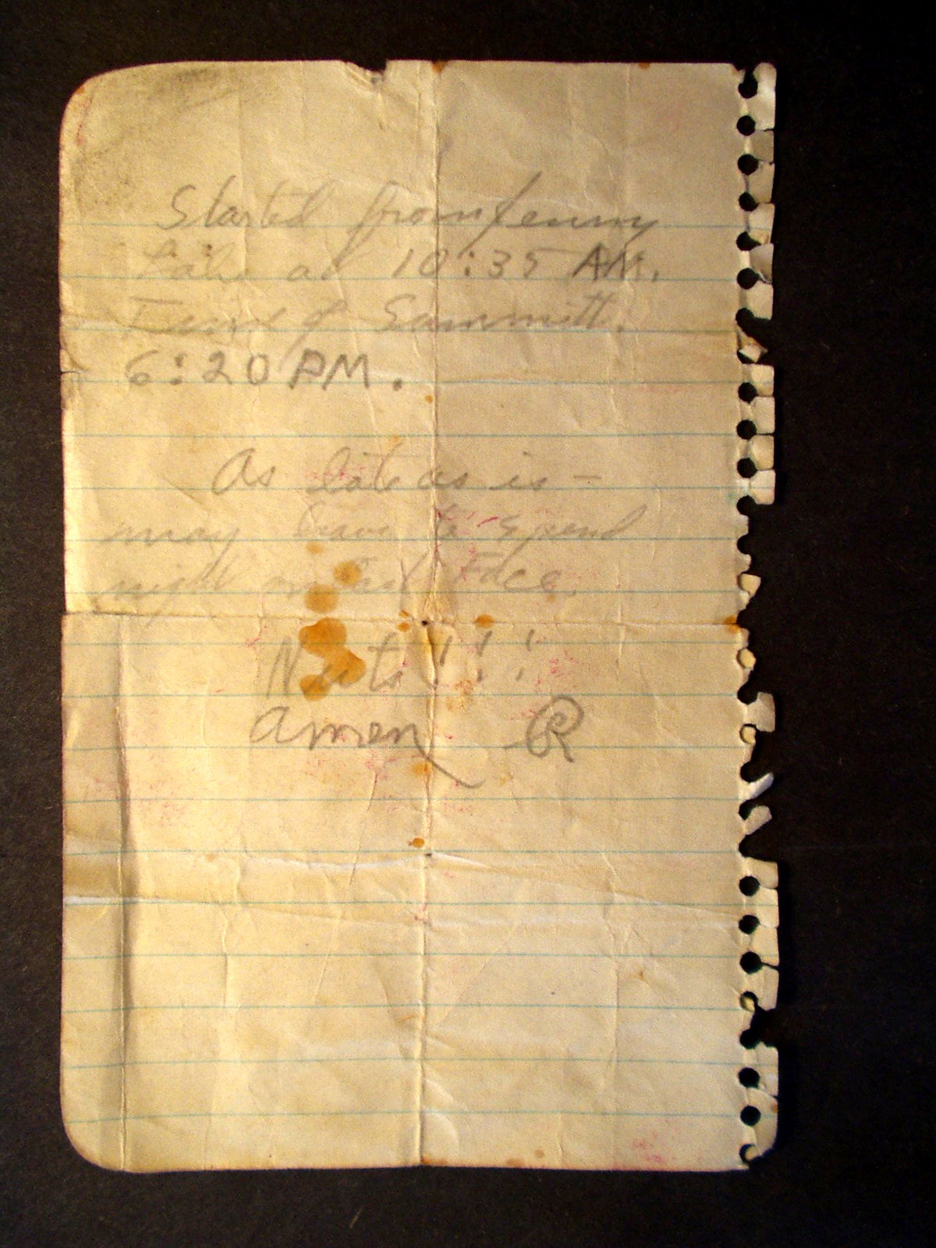 Started from Jenny
Lake at 10:35 AM.
Time of Summitt.
6:20 PM.
As late as is -
may have to spend
night on East Face.
Nuts!!!
Amen R